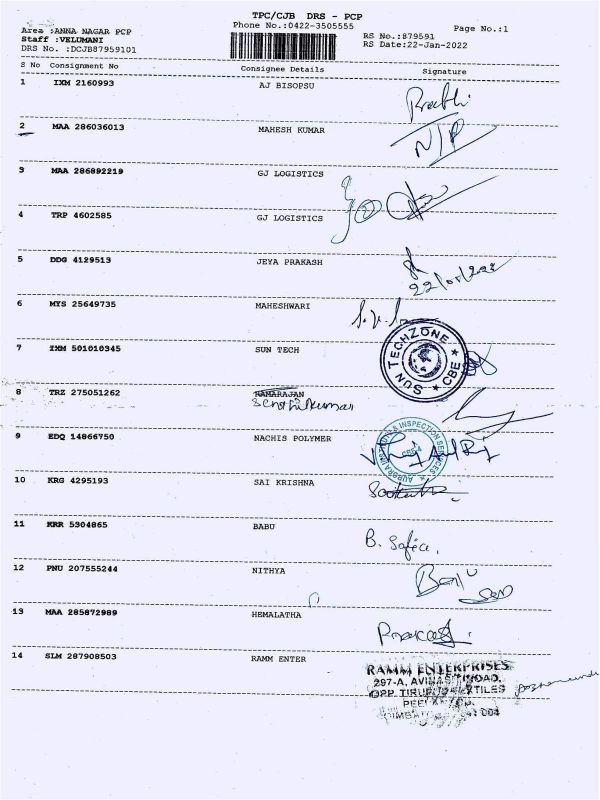 TPC/CJB DRS - PCP
Area :ANNA NAGAR PCP Phone No.:0422-3505555 Page No.:1
Staff :VELUMANI RS No.:879591
DRS No. :DCJB87959101 RS Date:22-Jan-2022
S No Consignment No Consignee Details Signature
1 IXM 2160993 AJ BISOPSU
2 MAA 286036013 MAHESH KUMAR N/P
3 MAA 286892219 GJ LOGISTICS
4 TRP 4602585 GJ LOGISTICS
5 DDG 4129513 JEYA PRAKASH
6 MYS 25649735 MAHESHWARI
7 IXM 501010345 SUN TECH
SUN TECHZONE ★ CBE ★
8 TRZ 275051262 RAMARAJAN
Senthilkumar
9 EDQ 14866750 NACHIS POLYMER
& INSPECTION SERVICES
10 KRG 4295193 SAI KRISHNA
11 KRR 5304865 BABU B. Safia.
12 PNU 207555244 NITHYA
13 MAA 285872989 HEMALATHA
14 SLM 287908503 RAMM ENTER
RAMM ENTERPRISES
297-A, AVINASHI ROAD,
OPP. TEXTILES
004